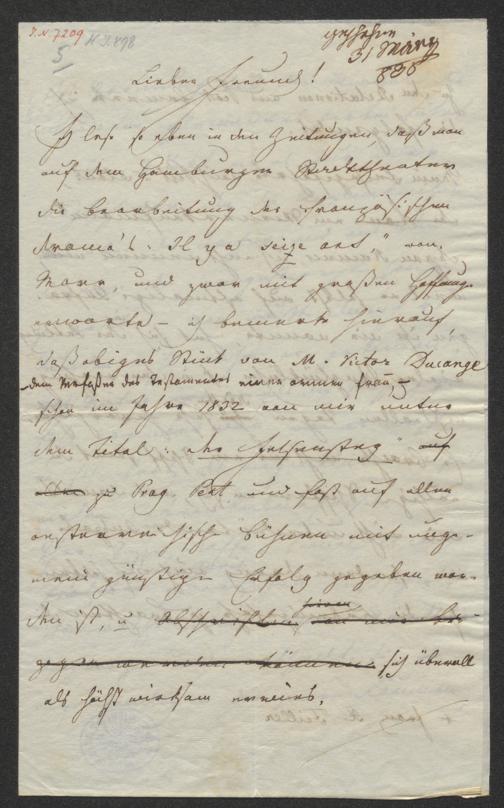 I.N. 7209
H.I. 878
5
gesehen
31 März
838
Lieber Freund!
Ich lese so eben in den Zeitungen, daß man
auf dem Hamburger Stadttheater
die Bearbeitung des französischen
Drama's: Il y a seize ans," von
Marr, und zwar mit großen Hoffnung.
erwarte – ich bemerke hierauf,
daß obiges Stück von M. Victor Ducange
dem Verfasser des Testamentes einer armen Frau, –
schon im Jahre 1832 von mir unter
dem Titel: "der Felsensteg" auf
allen zu Prag. Pest. und fast auf allen
oesterreichische Bühnen mit unge-
mein günstigen Erfolg gegeben wor-
den ist, u Abschriften von mir be-
zogen werden können sich überall
als höchst wirksam erwies.